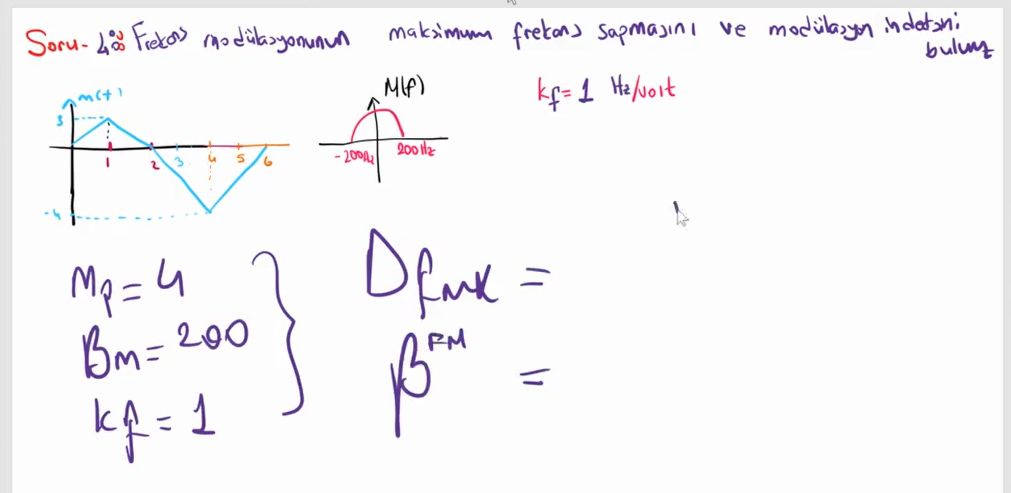 Soru- Frekans modülasyonunun maksimum frekans sapmasını ve modülasyon indeksini
bulunuz
m(t)
3
1 2 3 4 5 6
-4
M(f)
-200Hz 200Hz
kf= 1 Hz/volt
Mp= 4
Bm= 200
kf = 1
Dfmk =
β FM =